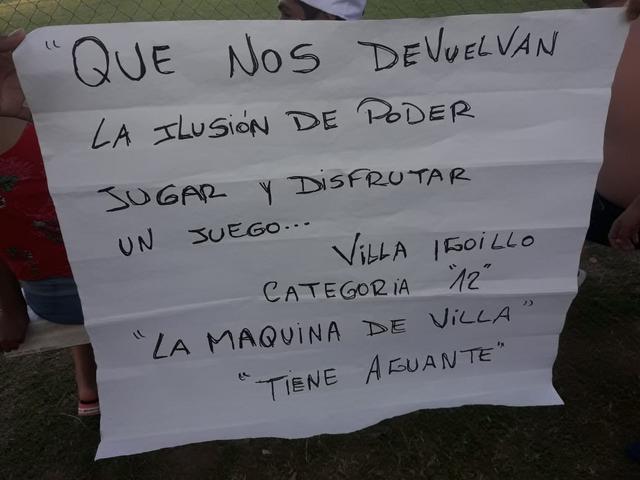 "QUE NOS DEVUELVAN
LA ILUSIÓN DE PODER
JUGAR Y DISFRUTAR
UN JUEGO...
VILLA IGOILLO
CATEGORIA "12"
"LA MAQUINA DE VILLA"
"TIENE AGUANTE"